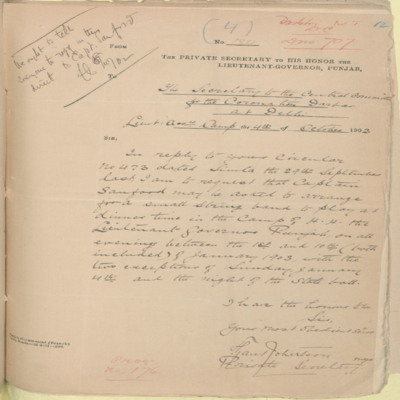 (4)
We ought to tell
everyone to reply
direct to Capt. Sanford
No.
From
THE PRIVATE SECRETARY TO HIS HONOR THE
LIEUTENANT-GOVERNOR, PUNJAB,
To
The Secretary to the Central
for the Coronation Durbar
at Delhi
Lieut: Govr's Camp 4th October 1902
SIR,
In reply to your Circular
No 473 dated Simla the 29th September
last I am to request that Captain
Sanford may be asked to arrange
for a small string band to play at
dinner time in the Camp of H. H. the
Lieutenant Governor Punjab on
evening between the 1st and 10th (both
included) of January 1903 with the
two exceptions of Sunday January
4th and the night of the State ball.
I have the honour to
Sir,
Your most obedient
Private Secretary